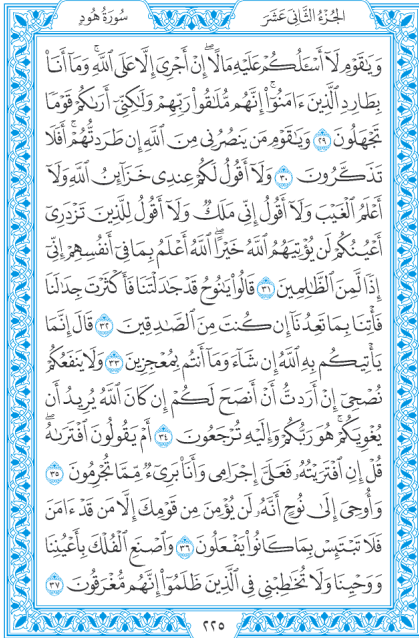 سُورَةُ هُودٍ الجُزْءُ الثَّانِي عَشَرَ
وَيَٰقَوْمِ لَآ أَسْـَٔلُكُمْ عَلَيْهِ مَالًا ۖ إِنْ أَجْرِىَ إِلَّا عَلَى ٱللَّهِ ۚ وَمَآ أَنَا۠
بِطَارِدِ ٱلَّذِينَ ءَامَنُوٓا۟ ۚ إِنَّهُم مُّلَٰقُوا۟ رَبِّهِمْ وَلَٰكِنِّىٓ أَرَىٰكُمْ قَوْمًا
تَجْهَلُونَ ٢٩ وَيَٰقَوْمِ مَن يَنصُرُنِى مِنَ ٱللَّهِ إِن طَرَدتُّهُمْ ۚ أَفَلَا
تَذَكَّرُونَ ٣٠ وَلَآ أَقُولُ لَكُمْ عِندِى خَزَآئِنُ ٱللَّهِ وَلَآ
أَعْلَمُ ٱلْغَيْبَ وَلَآ أَقُولُ إِنِّى مَلَكٌ وَلَآ أَقُولُ لِلَّذِينَ تَزْدَرِىٓ
أَعْيُنُكُمْ لَن يُؤْتِيَهُمُ ٱللَّهُ خَيْرًا ۖ ٱللَّهُ أَعْلَمُ بِمَا فِىٓ أَنفُسِهِمْ ۖ إِنِّىٓ
إِذًا لَّمِنَ ٱلظَّٰلِمِينَ ٣١ قَالُوا۟ يَٰنُوحُ قَدْ جَٰدَلْتَنَا فَأَكْثَرْتَ جِدَٰلَنَا
فَأْتِنَا بِمَا تَعِدُنَآ إِن كُنتَ مِنَ ٱلصَّٰدِقِينَ ٣٢ قَالَ إِنَّمَا
يَأْتِيكُم بِهِ ٱللَّهُ إِن شَآءَ وَمَآ أَنتُم بِمُعْجِزِينَ ٣٣ وَلَا يَنفَعُكُمْ
نُصْحِىٓ إِنْ أَرَدتُّ أَنْ أَنصَحَ لَكُمْ إِن كَانَ ٱللَّهُ يُرِيدُ أَن
يُغْوِيَكُمْ ۚ هُوَ رَبُّكُمْ وَإِلَيْهِ تُرْجَعُونَ ٣٤ أَمْ يَقُولُونَ ٱفْتَرَىٰهُ ۖ
قُلْ إِنِ ٱفْتَرَيْتُهُۥ فَعَلَىَّ إِجْرَامِى وَأَنَا۠ بَرِىٓءٌ مِّمَّا تُجْرِمُونَ ٣٥
وَأُوحِىَ إِلَىٰ نُوحٍ أَنَّهُۥ لَن يُؤْمِنَ مِن قَوْمِكَ إِلَّا مَن قَدْ ءَامَنَ
فَلَا تَبْتَئِسْ بِمَا كَانُوا۟ يَفْعَلُونَ ٣٦ وَٱصْنَعِ ٱلْفُلْكَ بِأَعْيُنِنَا
وَوَحْيِنَا وَلَا تُخَٰطِبْنِى فِى ٱلَّذِينَ ظَلَمُوٓا۟ ۚ إِنَّهُم مُّغْرَقُونَ ٣٧
٢٢٥